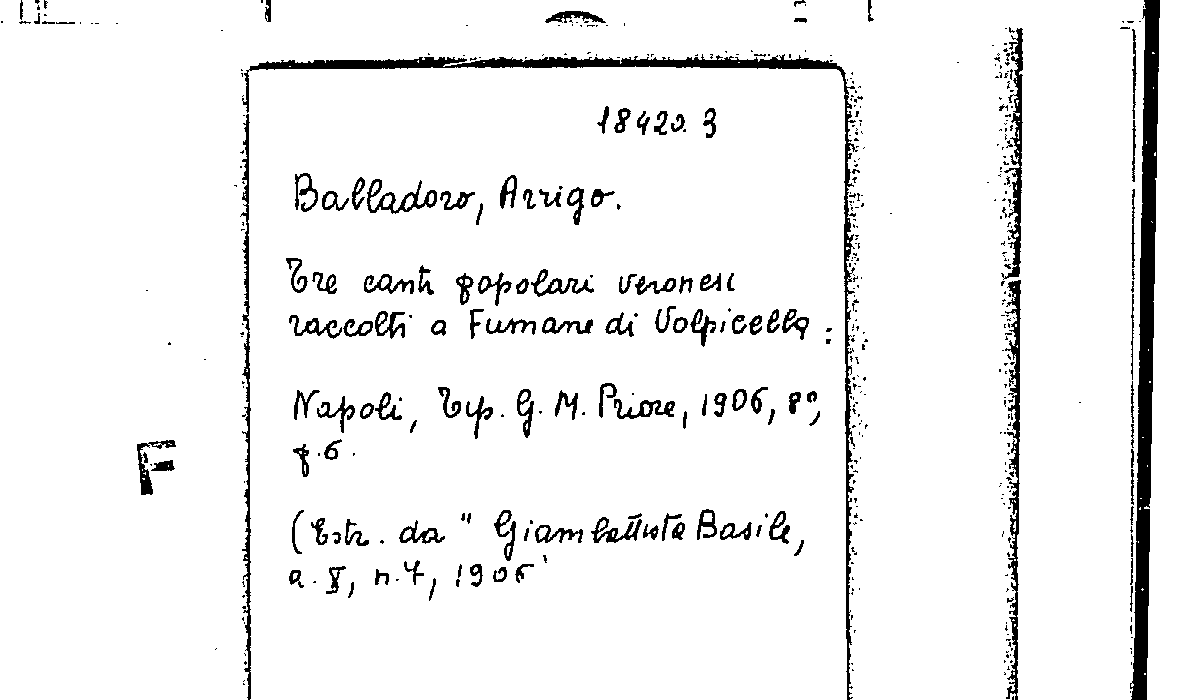 18420. 3
Balladoro, Arrigo.
Tre canti popolari veronesi
raccolti a Fumane di Volpicella :
Napoli, Tip. G. M. Priore, 1906, 8º,
p. 6.
F
(Estr. da " Giambattista Basile,
a. X, n. 7, 1906